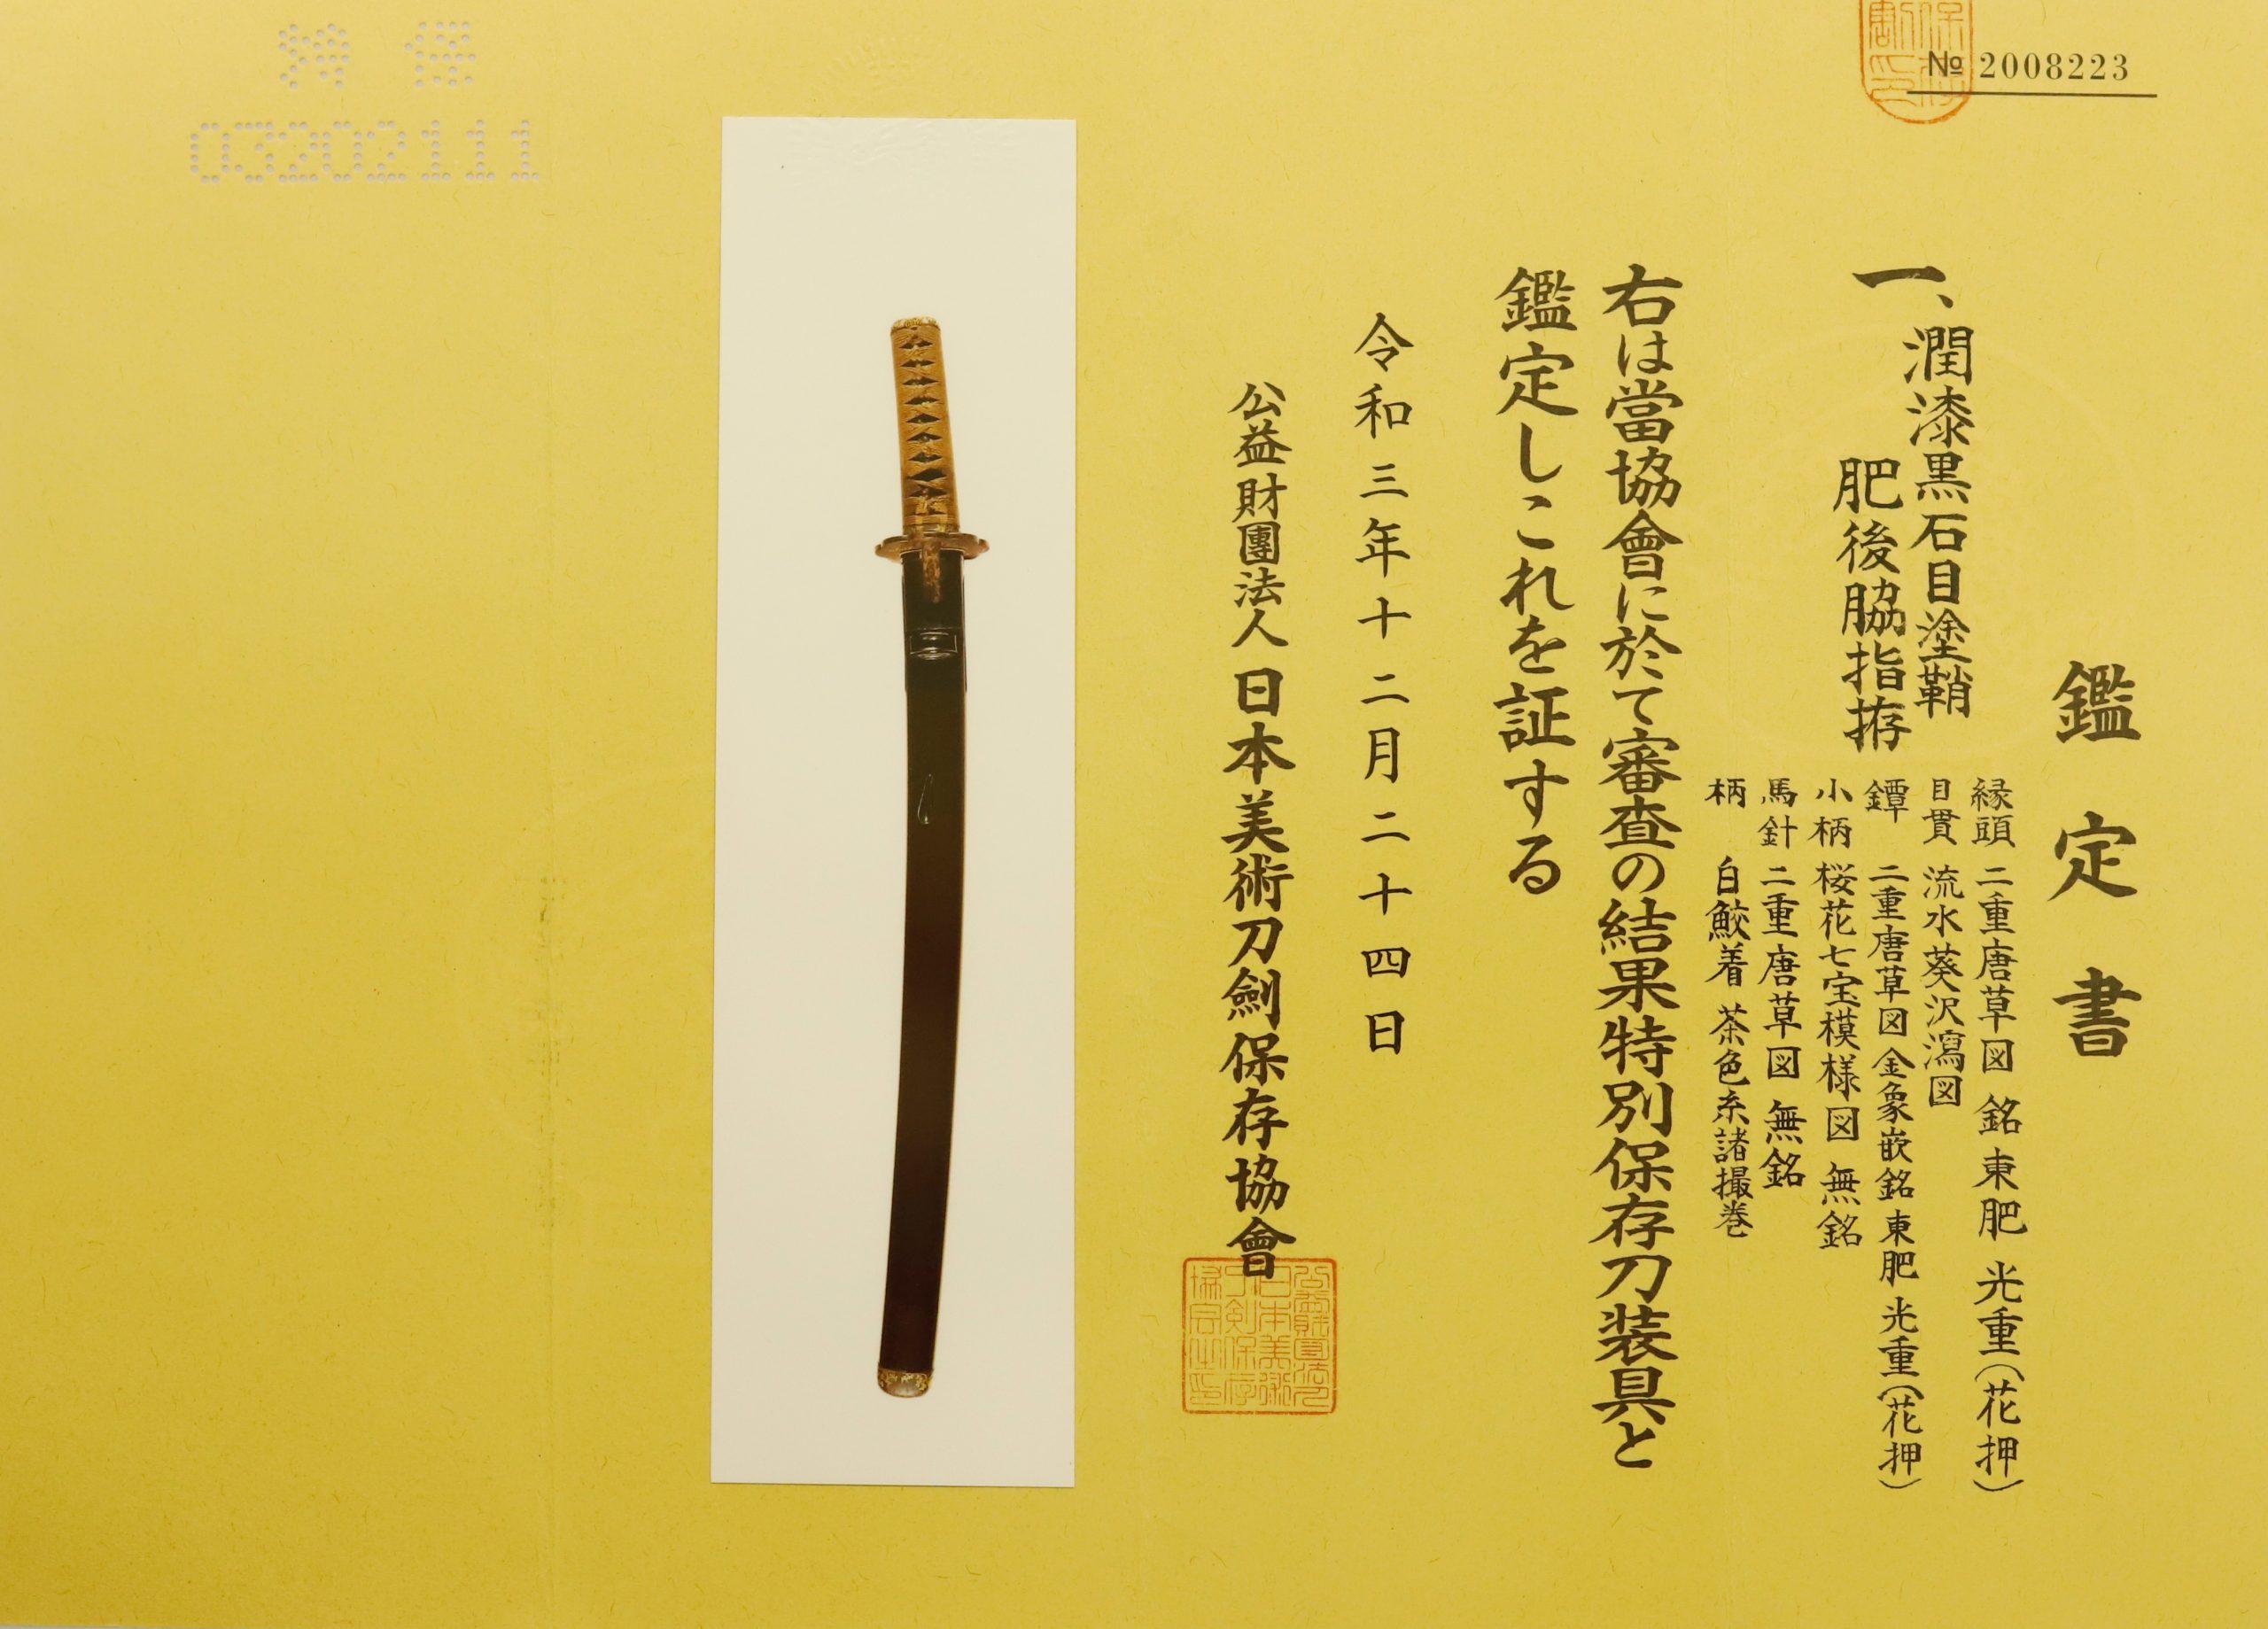 № 2008223
鑑定書
一、潤漆黒石目塗鞘
肥後脇指拵
縁頭 二重唐草図 銘 東肥 光重(花押)
目貫 流水葵沢瀉図
鐔 二重唐草図 金象嵌銘 東肥 光重(花押)
小柄 桜花七宝模様図 無銘
馬針 二重唐草図 無銘
柄 白鮫着 茶色糸諸撮巻
右は當協會に於て審査の結果特別保存刀装具と
鑑定しこれを証する
令和三年十二月二十四日
公益財團法人 日本美術刀劍保存協會
公益財団法人日本美術刀剣保存協会之印
特保
03202111